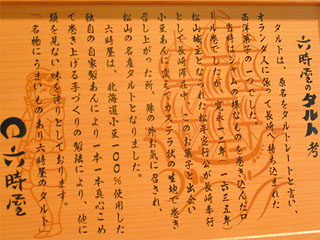 六時屋のタルト考
タルトは、原名をタルトレートといい、
オランダ人に依って長崎へ持ち込まれた
西洋菓子の一つでした。
当時はジャムの様なものを巻き込んだロ
ール菓子でしたが、寛永十二年(一六三五年)
松山城主となられた松平定行公が長崎奉行
として長崎滞在中、このお菓子と出会い
小豆あんに変えてカステラ状の生地で巻き
召し上がった所、殊の外お気に召され、
松山の名産タルトとなりました。
六時屋は、北海道小豆100%使用した
独自の自家製あんにより一本一本真心こめ
て巻き上げる手づくりの製法により、他に
類を見ない味を誇りとしております。
「名物にうまいものあり六時屋のタルト」
六時屋